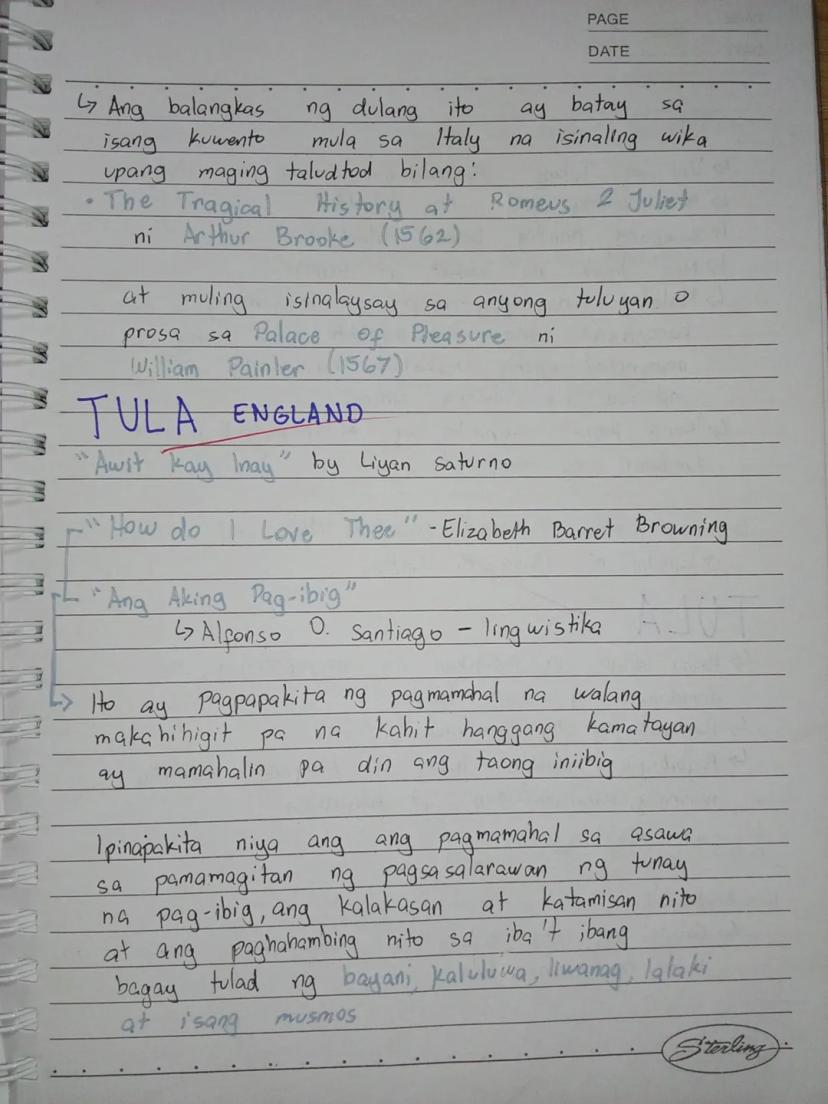 PAGE
DATE
↳ Ang balangkas ng dulang ito ay batay sa
isang kuwento mula sa Italy na isinaling wika
upang maging taludtod bilang:
• The Tragical History at Romeus & Juliet
ni Arthur Brooke (1562)
at muling isinalaysay sa anyong tuluyan o
prosa sa Palace of Pleasure ni
William Painler (1567)
TULA ENGLAND
"Awit kay Inay" by Liyan Saturno
"How do I Love Thee" - Elizabeth Barret Browning
"Ang Aking Pag-ibig"
↳ Alfonso O. Santiago - lingwistika
Ito ay pagpapakita ng pagmamahal na walang
makahihigit pa na kahit hanggang kamatayan
ay mamahalin pa din ang taong iniibig
Ipinapakita niya ang ang pagmamahal sa asawa
sa pamamagitan ng pagsasalarawan ng tunay
na pag-ibig, ang kalakasan at katamisan nito
at ang paghahambing nito sa iba't ibang
bagay tulad ng bayani, kaluluwa, liwanag, lalaki
at isang musmos
Sterling